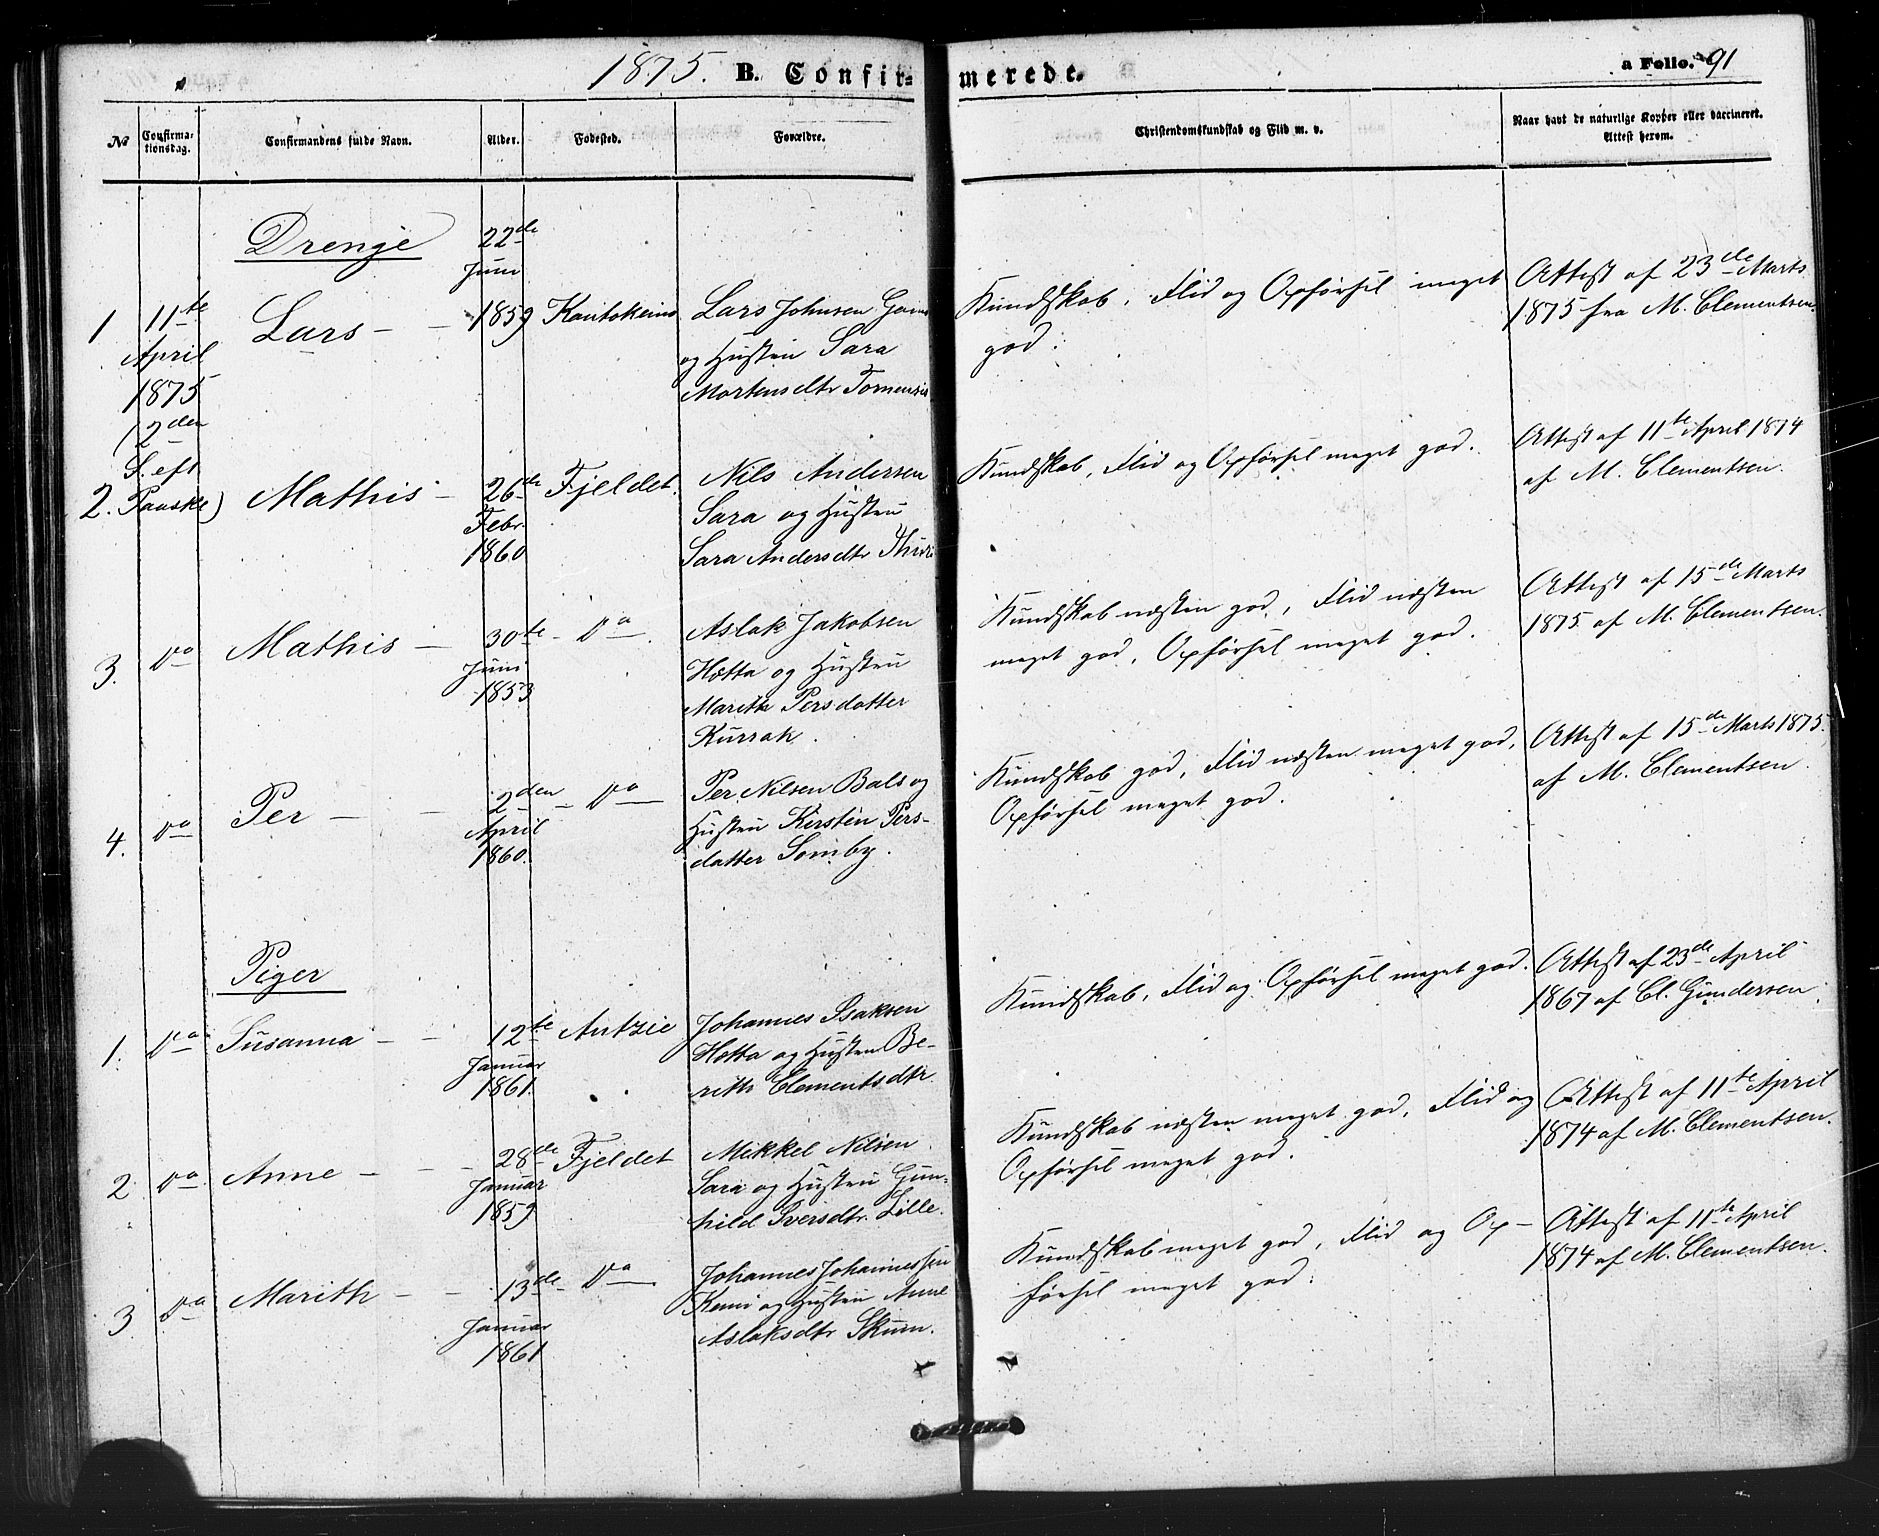 1875. B. Confir- merede. a Folio. 91
No Confirma-tionsdag. Confirmandens fulde Navn. Alder. Fødested. Forældre. Christendomskundskab og Flid m. v. Naar havt de naturlige Kopper eller vaccineret. Attest herom.
Drenge
1 11te April 1875 (2den S. eft Paaske) Lars — — 22de Juni 1859 Kautokeino
Lars Johnsen
og Hustru Sara
Mortensdtr Tornensis
Kundskab, Flid og Opførsel meget
god.
Attest af 23de Marts
1875 fra M. Clementsen.
2. Mathis — 26de Febr. 1860 Fjeldet.
Nils Andersen
Sara og Hustru
Sara Andersdtr Thuri
Kundskab, Flid og Opførsel meget god.
Attest af 11te April 1874
af M. Clementsen.
3. Do Mathis — 30te Juni 1853 — Do
Aslak Jakobsen
Hætta og Hustru
Marith Persdatter
Kurrak.
Kundskab næsten god, Flid næsten
meget god, Opførsel meget god.
Attest af 15de Marts
1875 af M. Clementsen.
4. Do Per — — 2den April 1860. — Do
Per Nilsen Bals og
Hustru Kirsten Pers-
datter Somby.
Kundskab god, Flid næsten meget god,
Opførsel meget god.
Attest af 15de Marts 1875.
af M. Clementsen.
Piger
1. Do Susanna — — 12te Januar 1861. Autzie
Johannes Isaksen
Hætta og Hustru Be-
rith Clementsdtr.
Kundskab, Flid og Opførsel meget god.
Attest af 23de April
1867 af Cl. Gundersen
2 Do. Anne — — — 28de Januar 1859 Fjeldet
Mikkel Nilsen
Sara og Hustru Gun-
hild Iversdtr. Lille.
Kundskab næsten meget god, Flid og
Opførsel meget god.
Attest af 11te April
1874 af M. Clementsen.
3 Do Marith — — 13de Januar 1861 — Do
Johannes Johannessen
Kemi og Hustru Anne
Aslaksdtr Skum.
Kundskab meget god, Flid og Op-
førsel meget god.
Attest af 11te April
1874 af M. Clementsen.